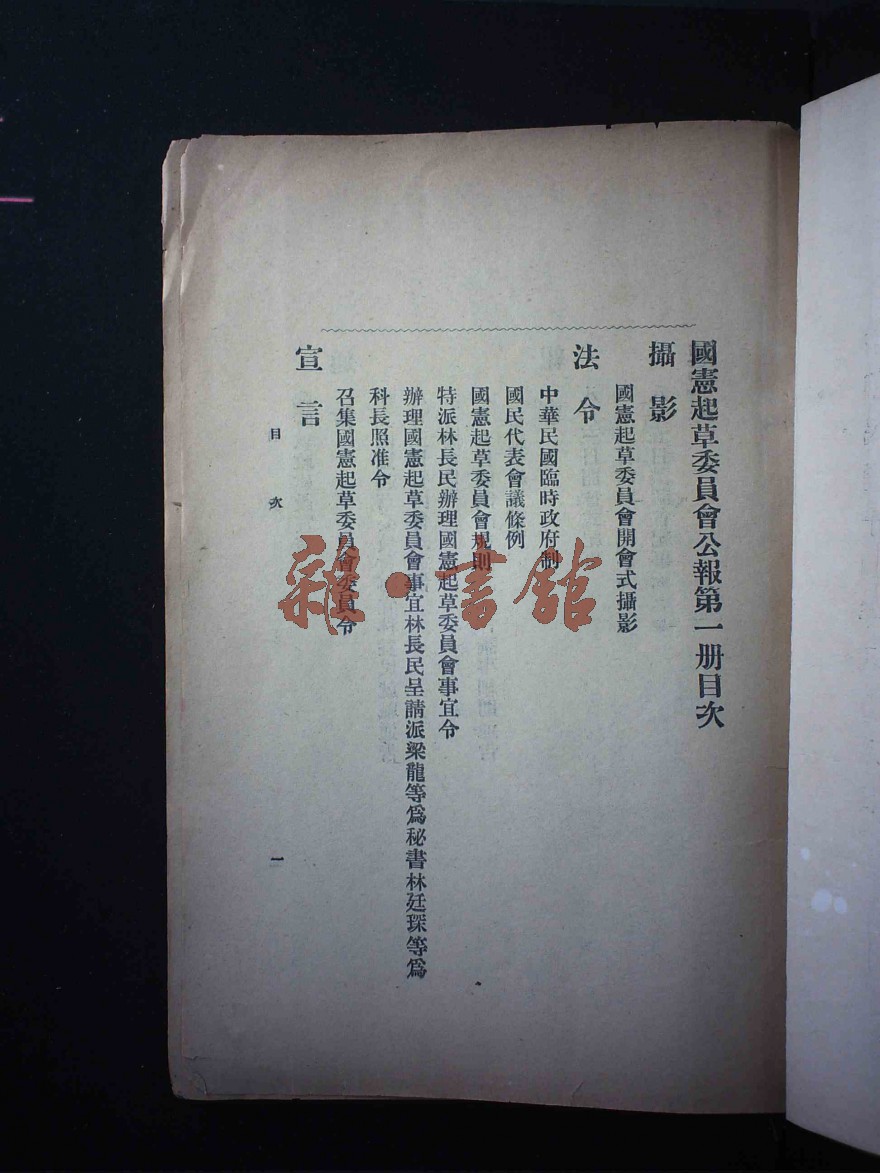 國憲起草委員會公報第一册目次
攝影
國憲起草委員會開會式攝影
法令
中華民國臨時政府制
國民代表會議條例
國憲起草委員會規則
特派林長民辦理國憲起草委員會事宜令
辦理國憲起草委員會事宜林長民呈請派梁龍等爲秘書林廷琛等爲
科長照准令
召集國憲起草委員會委員令
宣言
目次
一
雜·書館